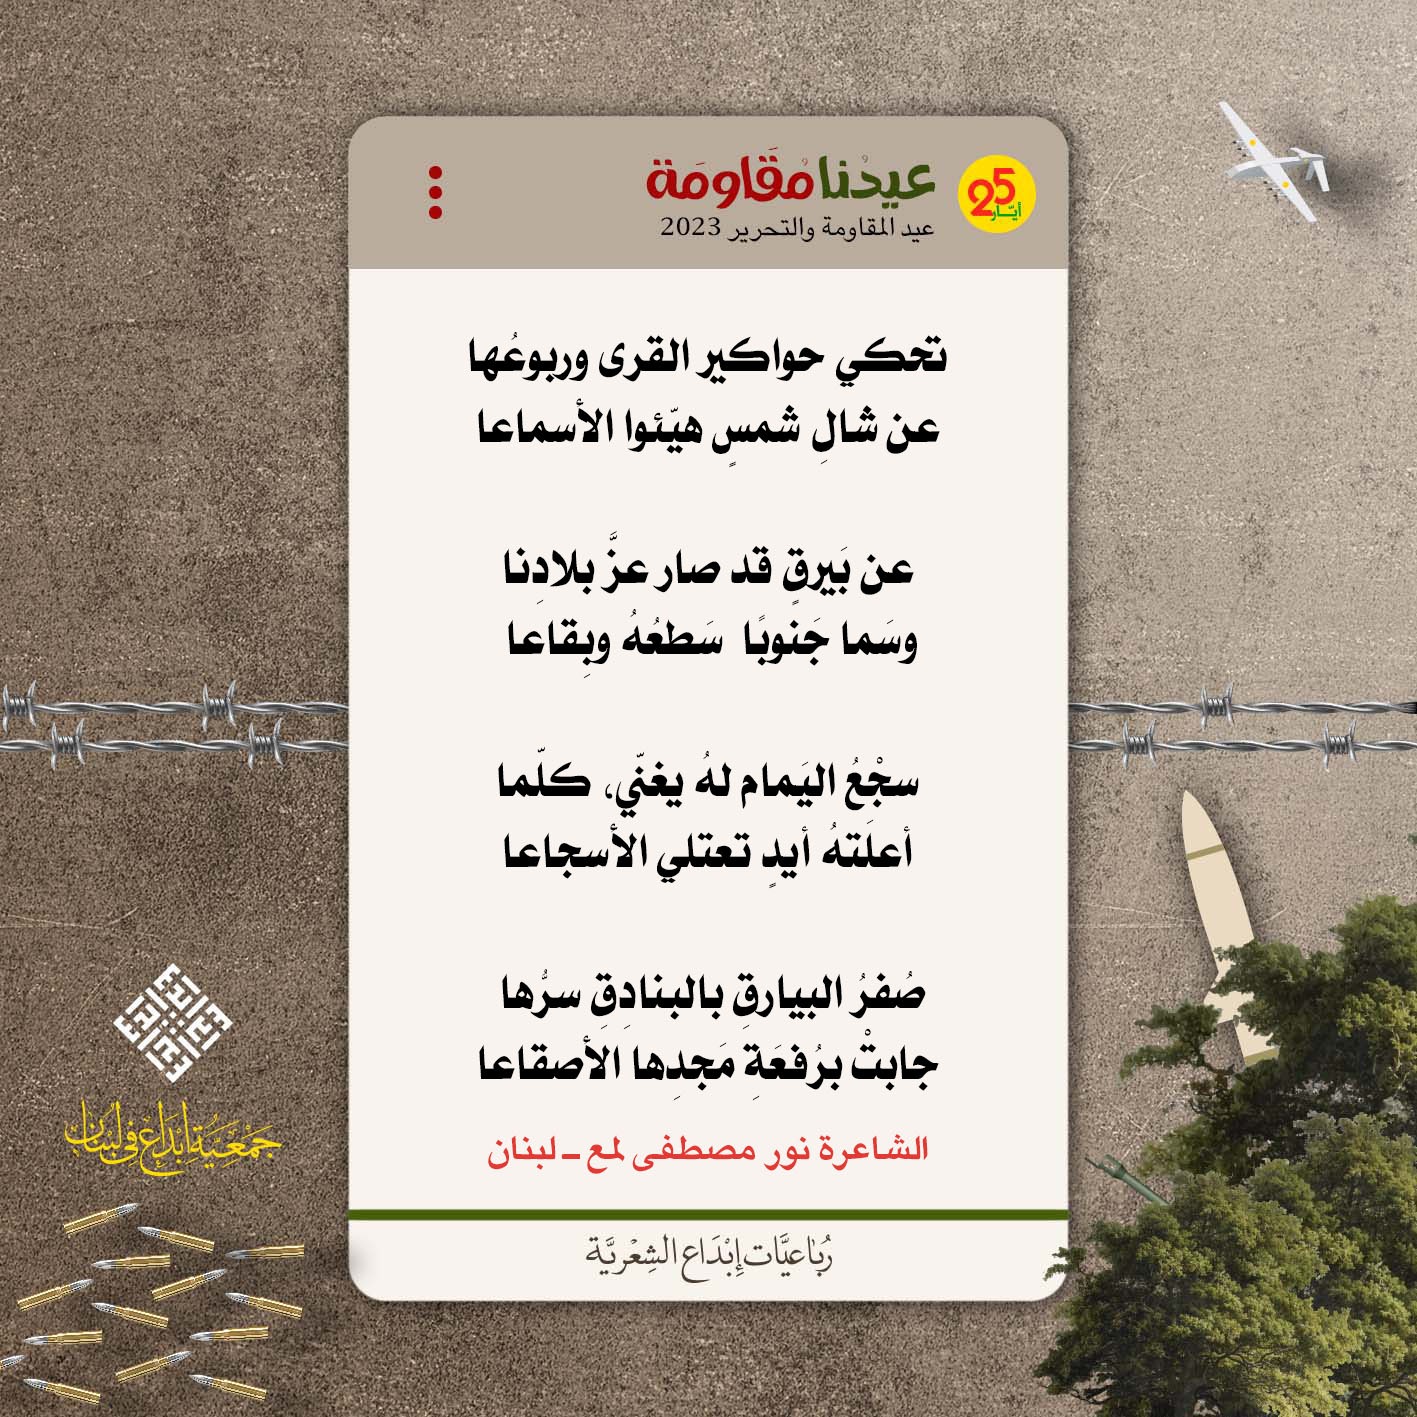 25
أيّار
عيدُنا مُقَاومَة
عيد المقاومة والتحرير 2023
تحكي حواكير القرى وربوعُها
عن شالِ شمسٍ هيّئوا الأسماعا
عن بَيرقٍ قد صار عزَّ بلادِنا
وسَما جَنوبًا سَطعُهُ وبِقاعا
سجْعُ اليَمام لهُ يغنّي، كلّما
أعلَتهُ أيدٍ تعتلي الأسجاعا
صُفرُ البيارقِ بالبنادِقِ سرُّها
جابتْ برُفعَةِ مَجدِها الأصقاعا
الشاعرة نور مصطفى لمع - لبنان
رُبَاعيَّات إِبْدَاع الشِعْريَّة
جَمْعِيَّة إبْدَاع في لبْنَان